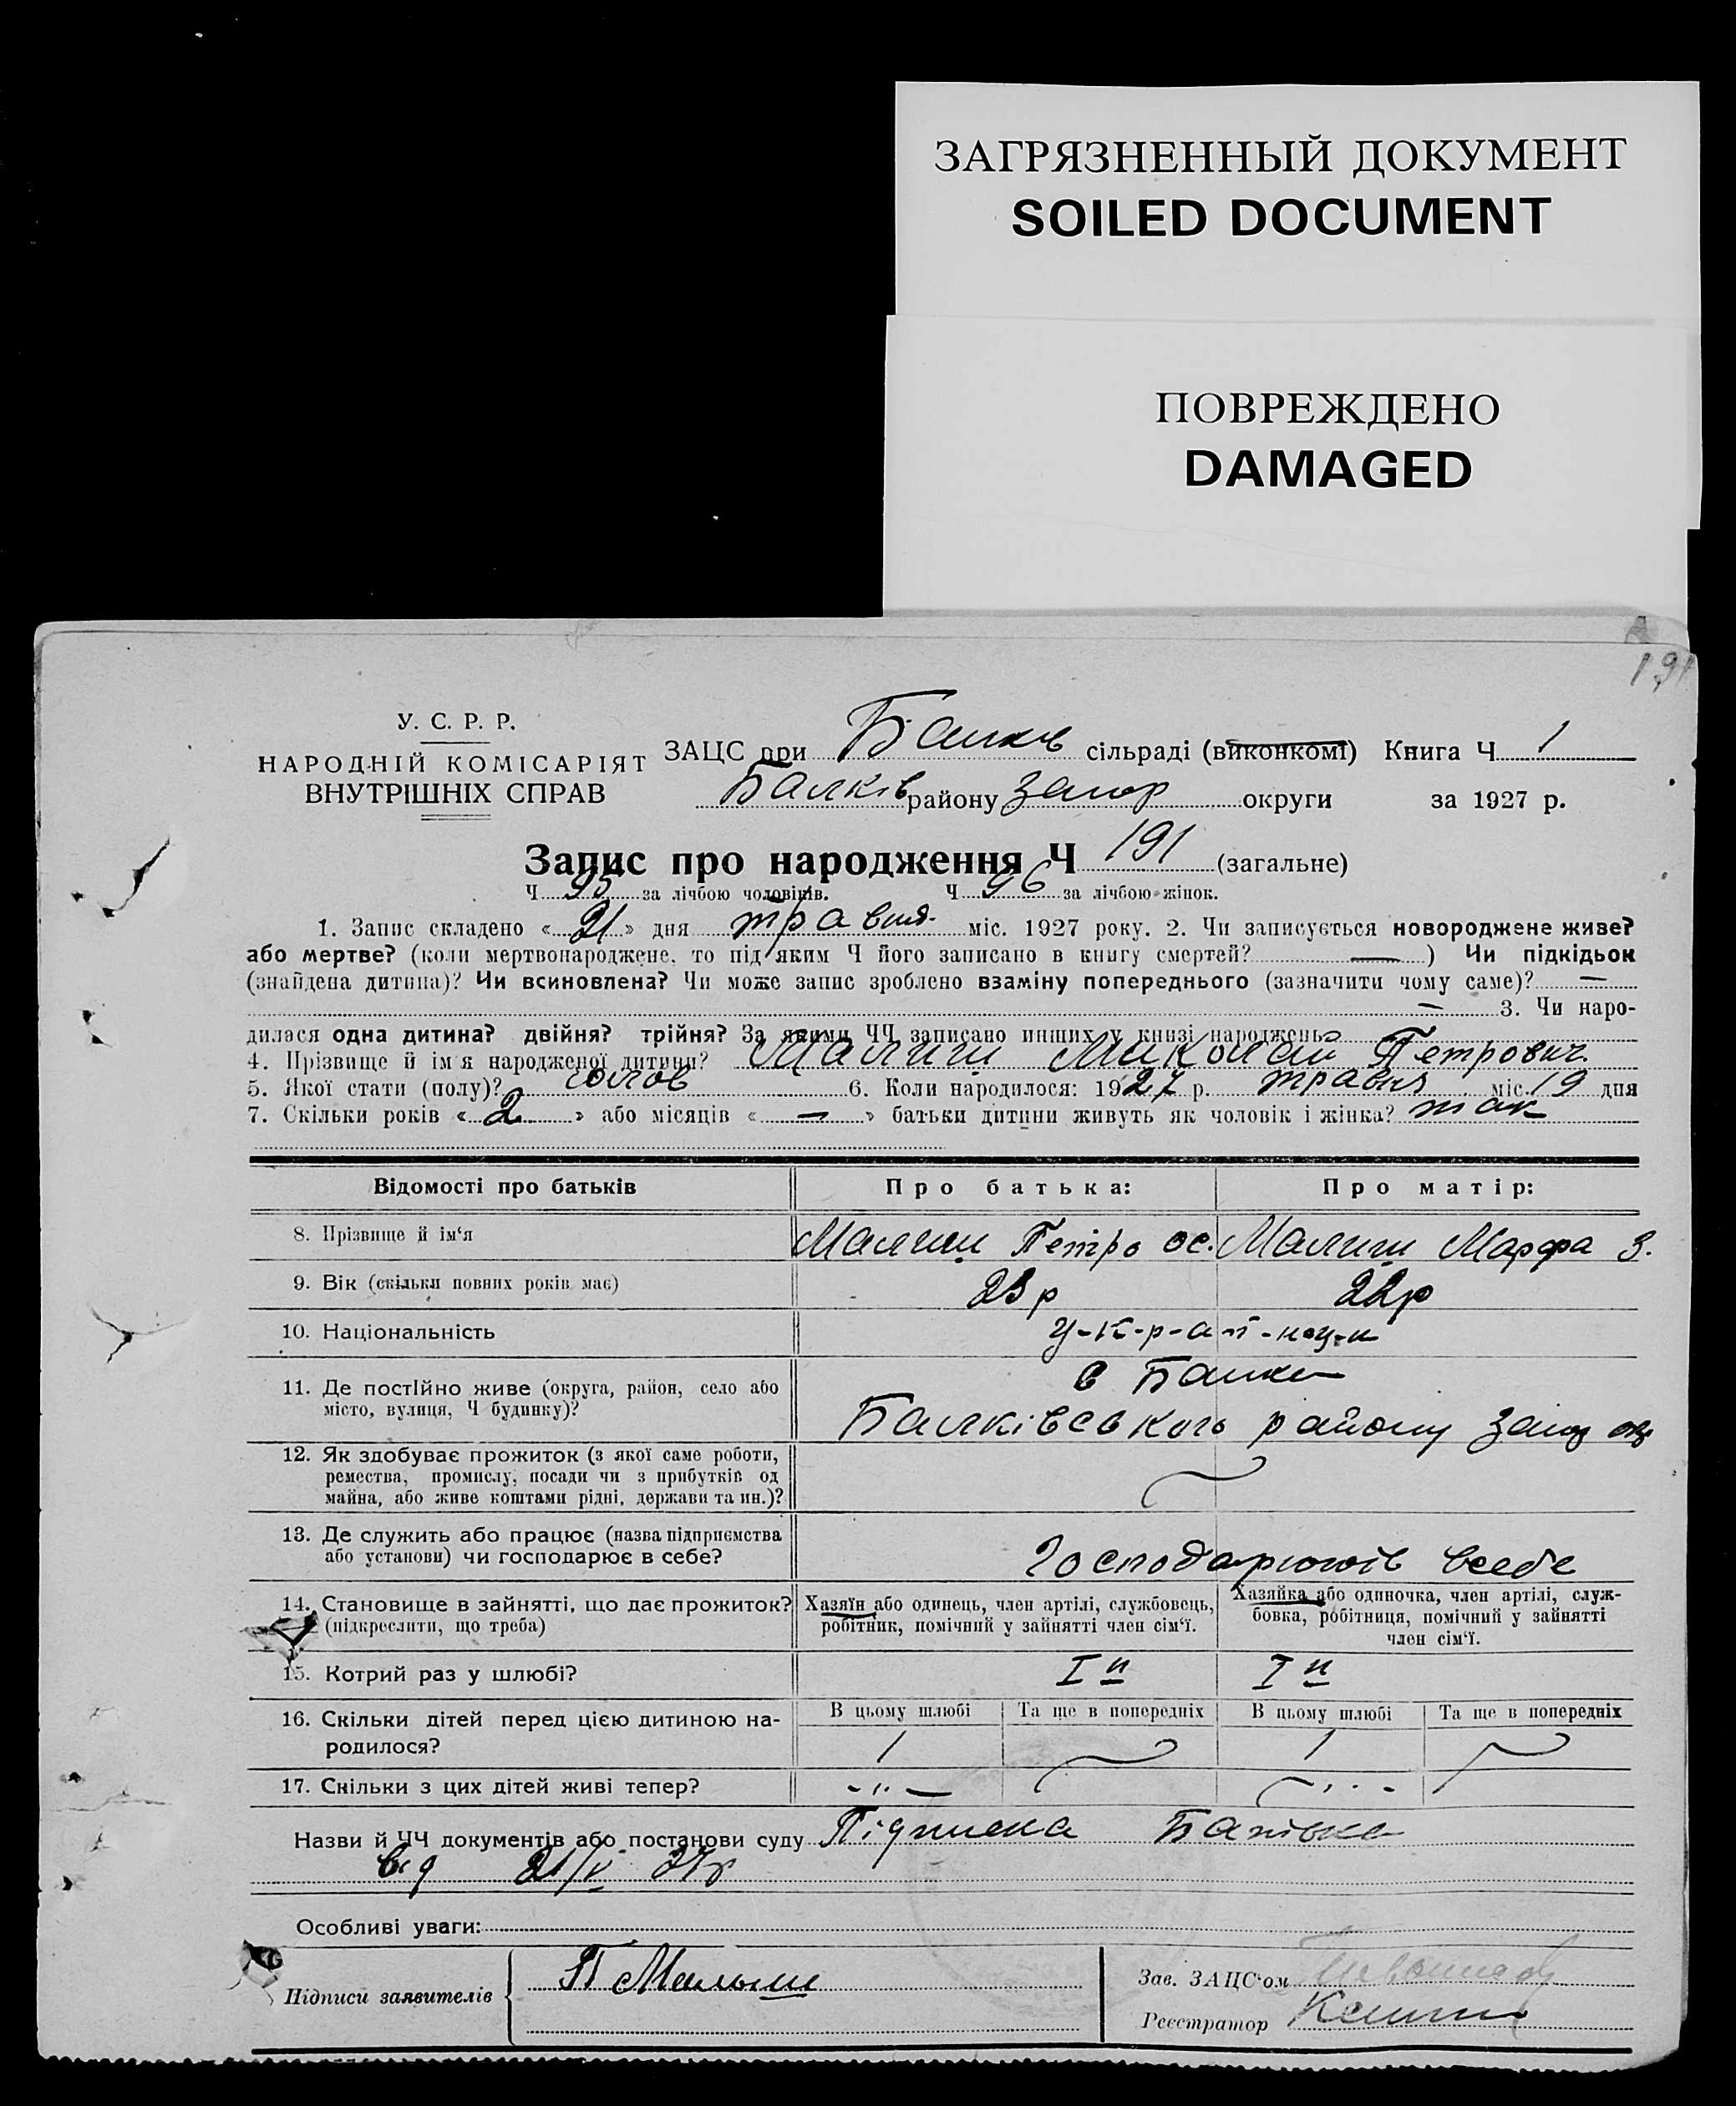 ЗАГРЯЗНЕННЫЙ ДОКУМЕНТ
SOILED DOCUMENT
ПОВРЕЖДЕНО
DAMAGED
191
У. С. Р. Р.
НАРОДНІЙ КОМІСАРІЯТ
ВНУТРІШНІХ СПРАВ
ЗАЦС при Балків сільраді (виконкомі) Книга Ч 1
Балків району Запор округи за 1927 р.
Запис про народження Ч 191 (загальне)
Ч 95 за лічбою чоловіків. Ч 96 за лічбою жінок.
1. Запис складено « 21 » дня травня міс. 1927 року. 2. Чи записується новороджене живе?
або мертве? (коли мертвонароджене, то під яким Ч його записано в книгу смертей? — ) Чи підкідьок
(знайдена дитина)? Чи всиновлена? Чи може запис зроблено взаміну попереднього (зазначити чому саме)? —
— 3. Чи наро-
дилася одна дитина? двійня? трійня? За якими ЧЧ записано инших у книзі народжень
4. Прізвище й ім'я народженої дитини? Малиш Миколай Петрович
5. Якої стати (полу)? чолов 6. Коли народилося: 1927 р. травня міс. 19 дня
7. Скільки років « 2 » або місяців « — » батьки дитини живуть як чоловік і жінка? так
Відомості про батьків Про батька: Про матір:
8. Прізвище й ім'я Малиш Петро Ос. Малиш Марфа З.
9. Вік (скільки повних років має) 23 р 22 р
10. Національність У-к-р-а-ї-н-ц-и
11. Де постійно живе (округа, район, село або в Балки
місто, вулиця, Ч будинку)? Балківського району Запор окр
12. Як здобуває прожиток (з якої саме роботи,
ремества, промислу, посади чи з прибутків од
майна, або живе коштами рідні, держави та ин.)?
13. Де служить або працює (назва підприємства
або установи) чи господарює в себе? Господарюють всебе
14. Становище в зайнятті, що дає прожиток? Хазяїн або одинець, член артілі, службовець, Хазяйка або одиночка, член артілі, служ-
(підкреслити, що треба) робітник, помічний у зайнятті член сім'ї. бовка, робітниця, помічний у зайнятті
член сім'ї.
15. Котрий раз у шлюбі? I й I й
16. Скільки дітей перед цією дитиною на- В цьому шлюбі Та ще в попередніх В цьому шлюбі Та ще в попередніх
родилося? 1 1
17. Скільки з цих дітей живі тепер? -"- -"-
Назви й ЧЧ документів або постанови суду Підписка Батька
від 21/V 27р
Особливі уваги:
Підписи заявителів П Малыш
Зав. ЗАЦС'ом
Реєстратор